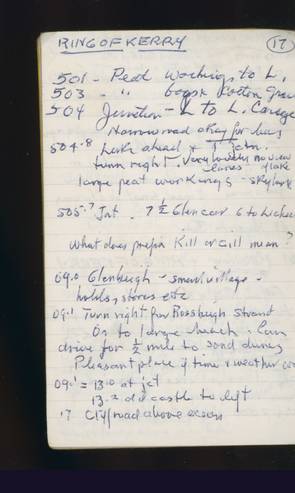 RING OF KERRY 17
501 - Peat workings to L.
503 - " bogs & Cotton Gras
504 Junction - L to L. Carag
Narrow road okay for bus
504.8 Lake ahead & T Jctn.
turn right. Very lovely narrow
lanes + lake
large peat workings - skylark
505.7 Jct. 7 ½ Glencar 6 to
What does prefix Kill or Cill mean?
09.0 Glenbeigh - small village -
hotels, stores etc
09.1 Turn right for Rossbeigh Strand
Or to large beach. Can
drive for ½ mile to sand dunes
Pleasant place if time & weather
09.1 = 13.0 at jct
13.2 old castle to left
.7 Clif/road above ocean